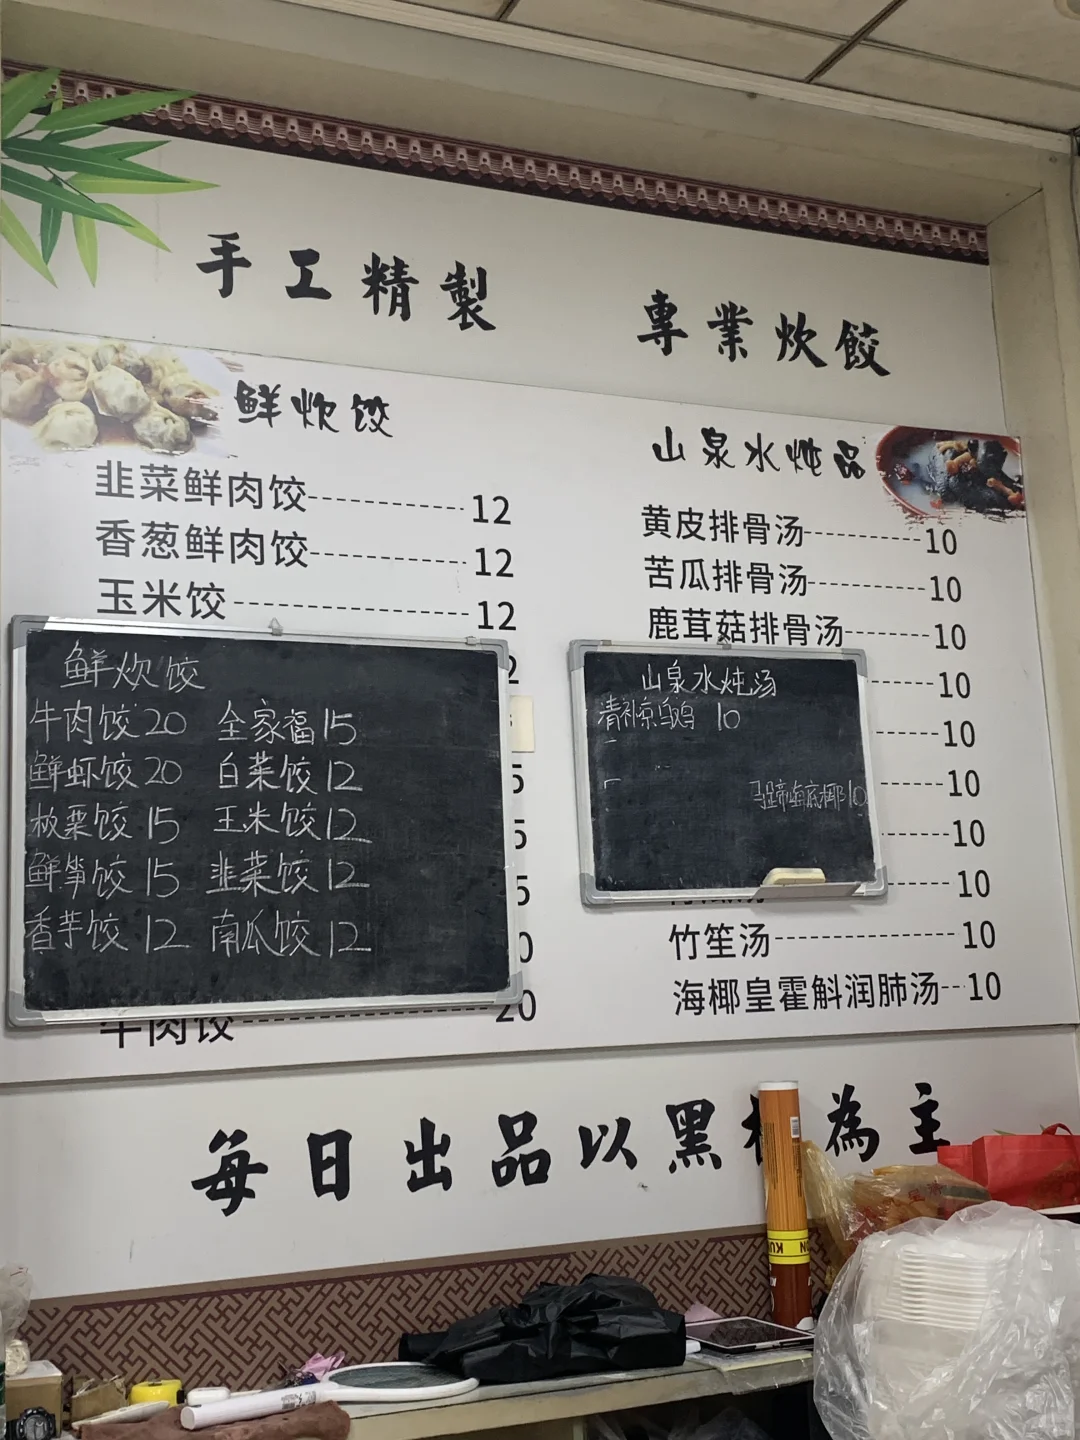 手工精製
專業炊餃
鲜炊饺
韭菜鲜肉饺 12
香葱鲜肉饺 12
玉米饺 12
鲜炊饺
牛肉饺20 全家福15
鲜虾饺20 白菜饺12
板栗饺15 玉米饺12
鲜笋饺15 韭菜饺12
香芋饺12 南瓜饺12
牛肉饺 20
山泉水炖品
黄皮排骨汤 10
苦瓜排骨汤 10
鹿茸菇排骨汤 10
山泉水炖汤
清补凉乌鸡 10
马蹄 椰10
10
10
10
10
10
竹笙汤 10
海椰皇霍斛润肺汤 10
每日出品以黑 為主